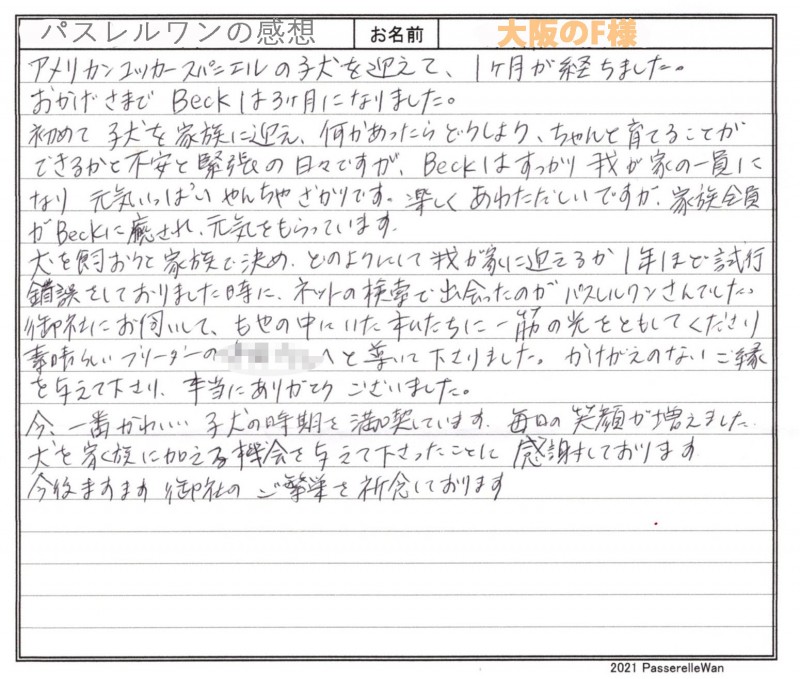 パスレルワンの感想 お名前 大阪のF様
アメリカンコッカースパニエルの子犬を迎えて、1ヶ月が経ちました。
おかげさまで Beckは3ヶ月になりました。
初めて子犬を家族に迎え、何かあったらどうしよう、ちゃんと育てることが
できるかと不安と緊張の日々ですが、Beckはすっかり我が家の一員に
なり 元気いっぱい やんちゃざかりです。楽しく あわただしいですが、家族全員
がBeckに癒され、元気をもらっています。
犬を飼おうと家族で決め、どのようにして我が家に迎えるか 1年ほど試行
錯誤をしておりました時に、ネットの検索で出会ったのがパスレルワンさんでした。
御社にお伺いして、もやの中にいた私たちに一筋の光をともしてくださり
素晴らしいブリーダーの へと導いて下さりました。かけがえのないご縁
を与えて下さり、本当にありがとうございました。
今、一番かわいい 子犬の時期を満喫しています。毎日の笑顔が増えました。
犬を家族に加える機会を与えて下さったことに感謝しております
今後ますます 御社の ご繁栄を祈念しております
2021 PasserelleWan